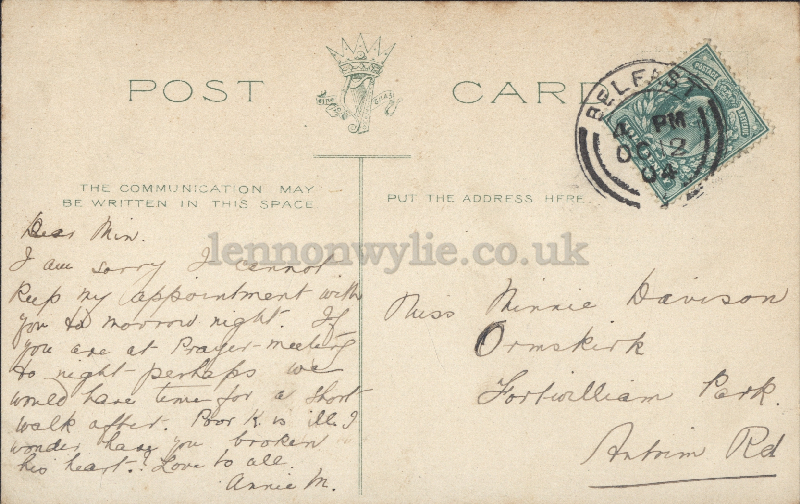 POST CARD
BELFAST
4 PM
OC 12
04
THE COMMUNICATION MAY
BE WRITTEN IN THIS SPACE.
PUT THE ADDRESS HERE
lennonwylie.co.uk
Dear Min.
I am sorry I cannot
keep my appointment with
you to morrow night. If
you are at Prayer-meeting
to night perhaps we
would have time for a short
walk after. Poor K. is ill. I
wonder have you broken
his heart? Love to all.
Annie M.
Miss Minnie Davison
Ormskirk
Fortwilliam Park.
Antrim Rd